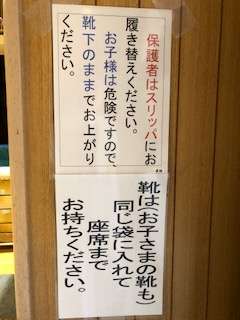 保護者はスリッパにお
履き替えください。
お子様は危険ですので、
靴下のままでお上がり
ください。
靴は(お子さまの靴も)
同じ袋に入れて
座席まで
お持ちください。